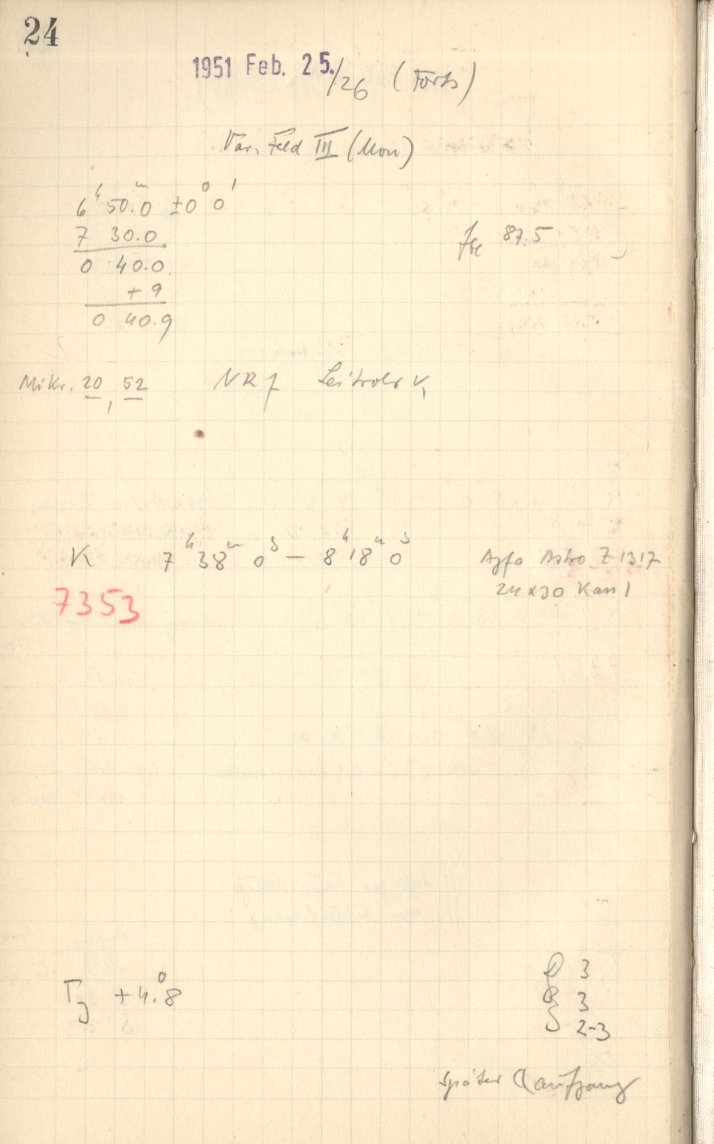 24
1951 Feb. 25./26 (Forts)
Var. Feld III (Mon)
6ʰ 50ᵐ.0 ±0° 0'
7 30.0
0 40.0
+ 9
0 40.9
87.5
Mikr. 20, 52 NR 7 Leitrohr
K 7ʰ 38ᵐ 0ˢ — 8ʰ 18ᵐ 0ˢ Agfa Astro Z 1317
24x30 Kass 1
7353
+4°.8
3
3
2-3
später aufgang